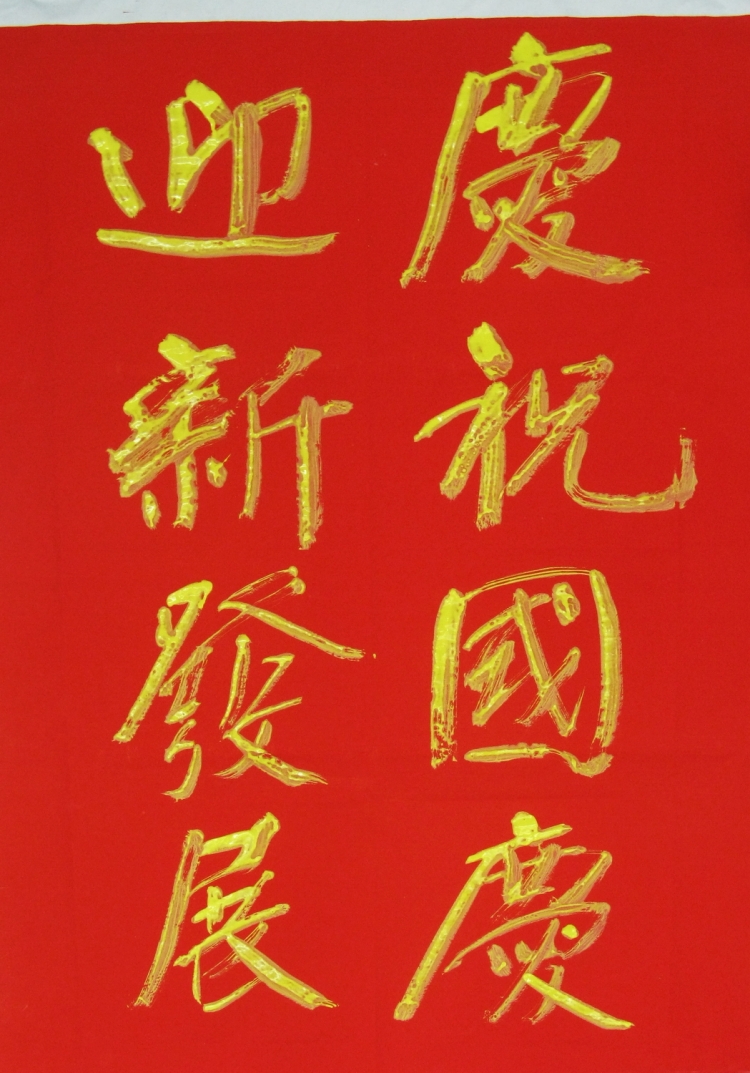 慶祝國慶
迎新發展